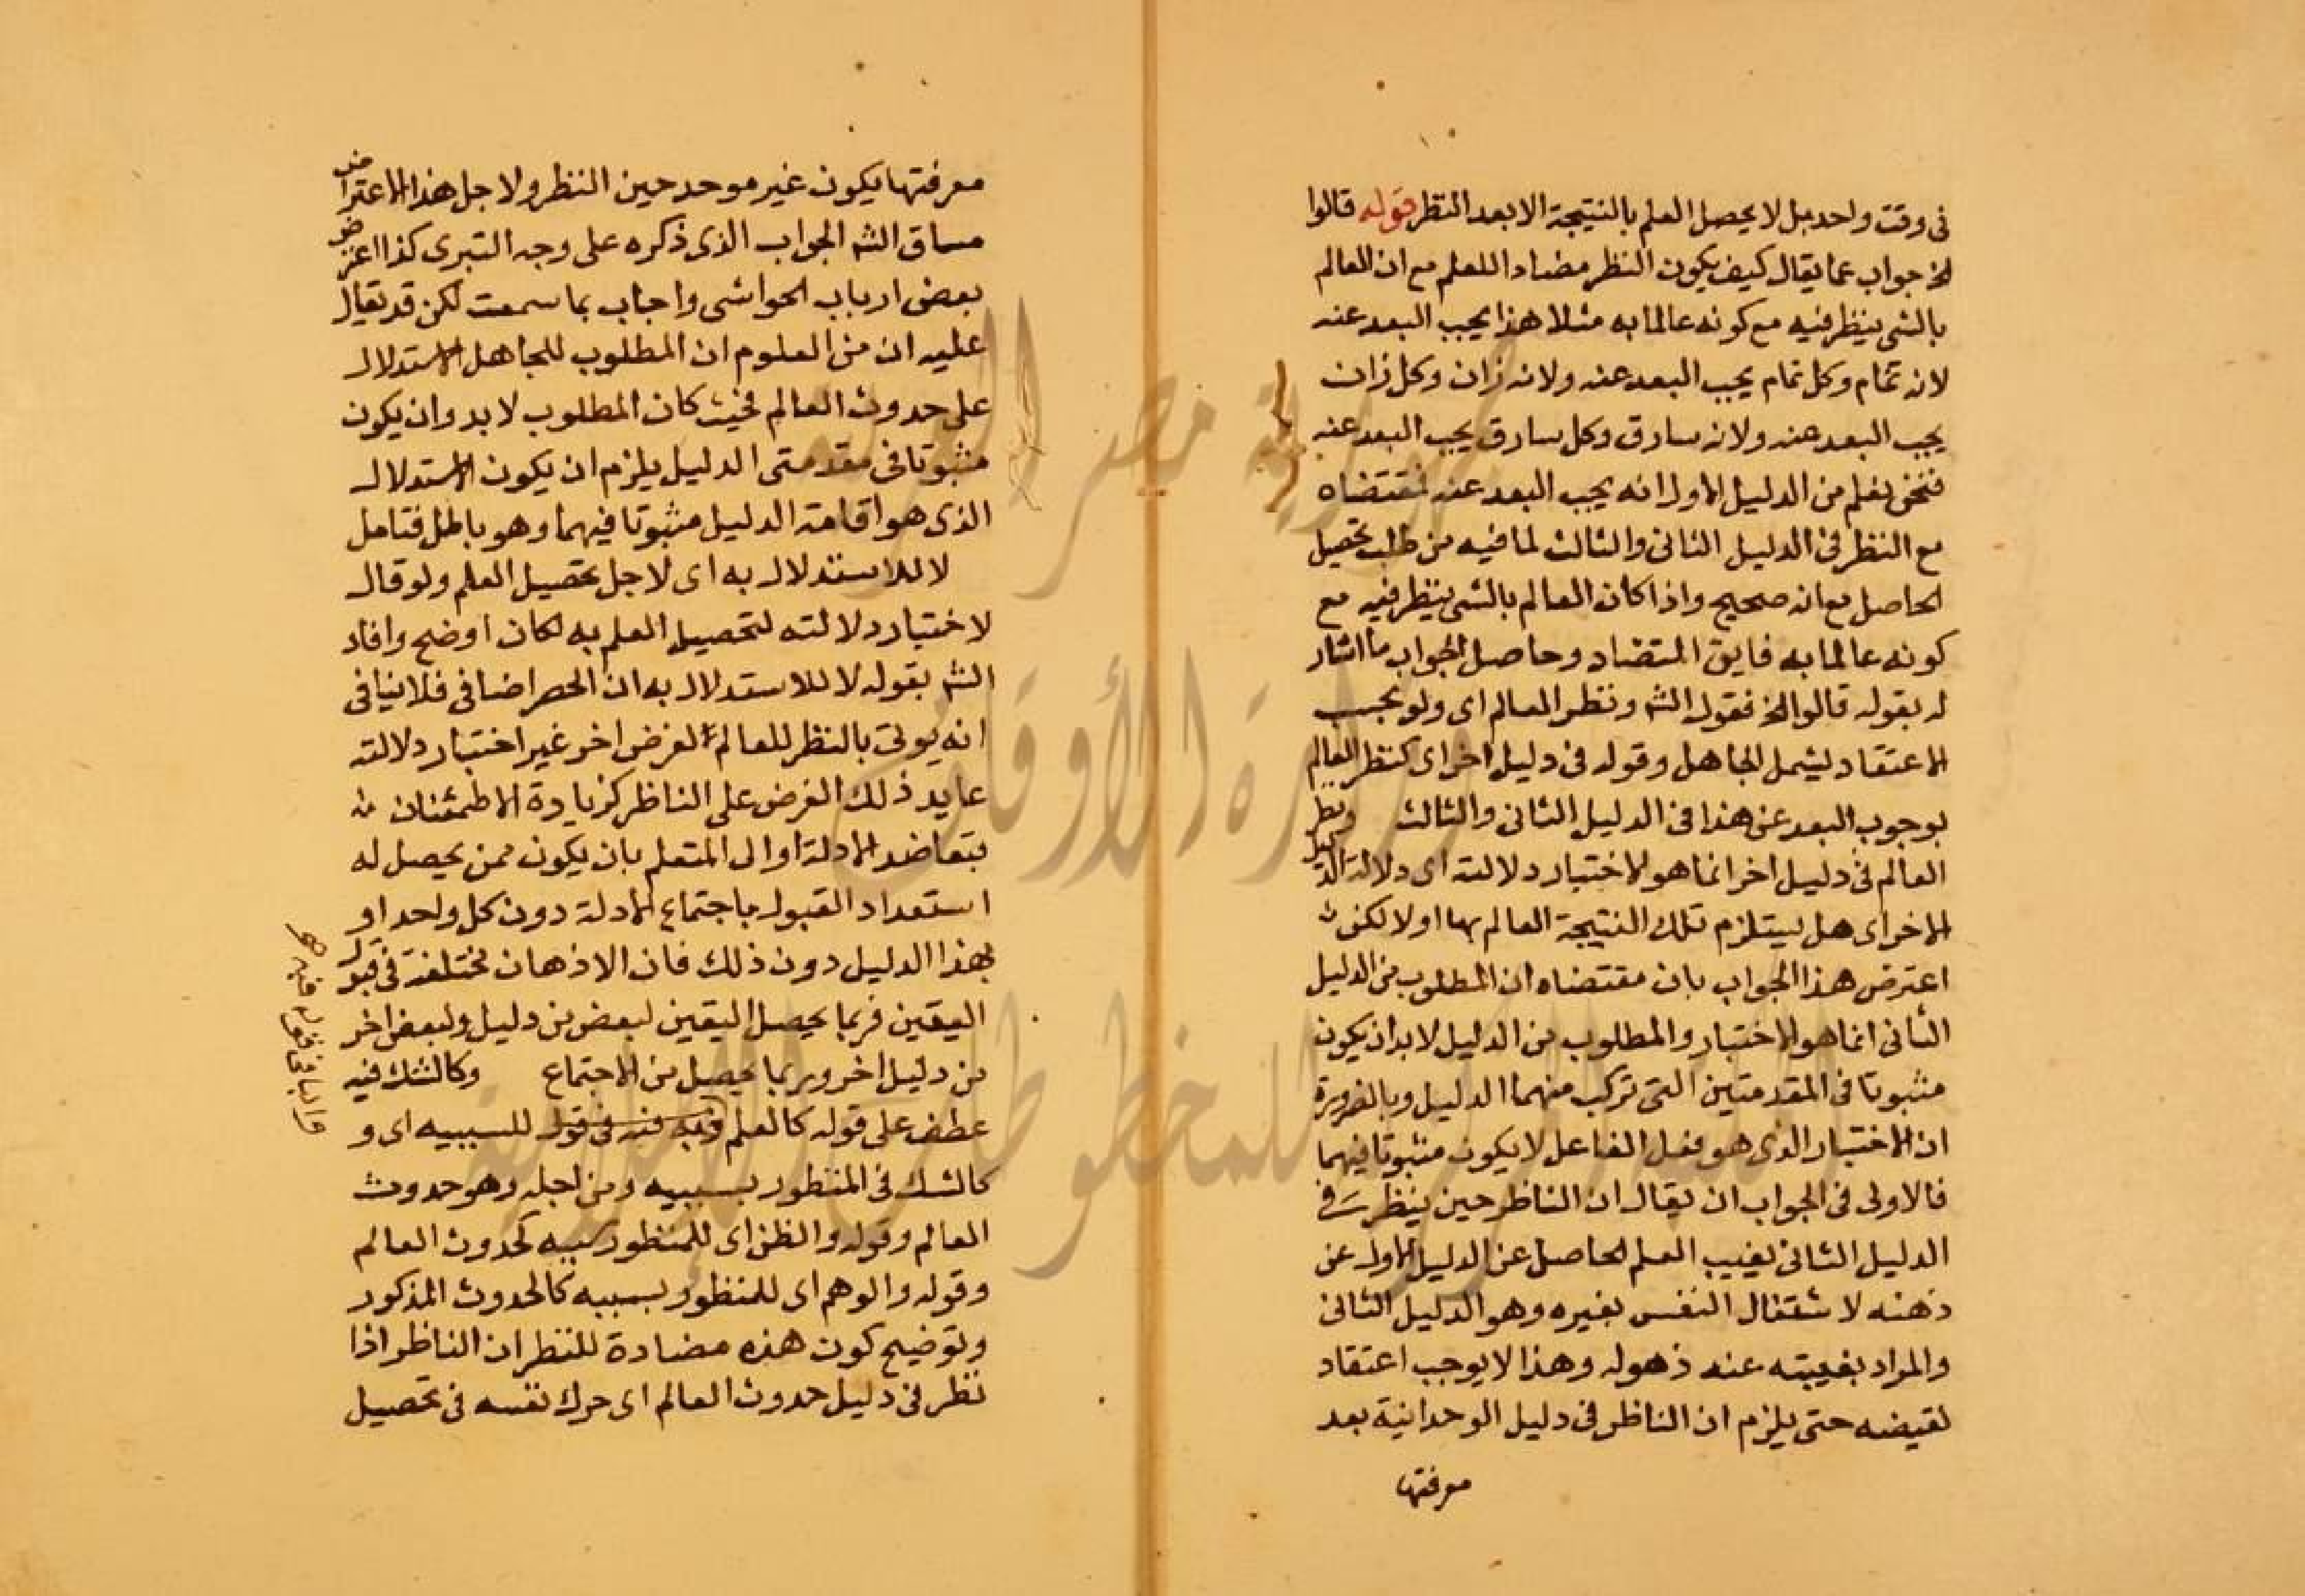 في وقت واحد بل لا يحصل العلم بالنتيجة الا بعد النظر قوله قالوا
الخ جواب عما يقال كيف يكون النظر مضادا للعلم مع ان العالم
بالشي ينظر فيه مع كونه عالما به مثلا هذا يجب البعد عنه
لانه نمام وكل نمام يجب البعد عنه ولانه زان وكل زان
يجب البعد عنه ولانه سارق وكل سارق يجب البعد عنه
فنحن نعلم من الدليل الاول انه يجب البعد عنه فمقتضاه
مع النظر في الدليل الثاني والثالث لما فيه من طلب تحصيل
الحاصل مع انه صحيح واذا كان العالم بالشي ينظر فيه مع
كونه عالما به فاين المتضاد وحاصل الجواب ما اشار
له بقوله قالوا الخ فقول الشه ونظر العالم اى ولو بحسب
الاعتقاد ليشمل الجاهل وقوله في دليل اخر اى كنظر العالم
بوجوب البعد عن هذا في الدليل الثاني والثالث ونظر
العالم في دليل اخر انما هو لاختبار دلالته اى دلالة الدليل
الاخر اى هل يستلزم تلك النتيجة العالم بها اولا لكن
اعترض هذا الجواب بان مقتضاه ان المطلوب من الدليل
الثاني انما هو الاختبار والمطلوب من الدليل لا بد ان يكون
مثبوتا في المقدمتين التي تركب منهما الدليل وبالضرورة
ان الاختبار الذى هو فعل الفاعل لا يكون مثبوتا فيهما
فالاولى في الجواب ان يقال ان الناظر حين ينظر في
الدليل الثاني يغيب العلم الحاصل عن الدليل الاول عن
ذهنه لاشتغال النفس بغيره وهو الدليل الثاني
والمراد بغيبته عنه ذهوله وهذا لا يوجب اعتقاد
نقيضه حتى يلزم ان الناظر في دليل الوحدانية بعد
معرفتها
معرفتها يكون غير موحد حين النظر ولاجل هذا الاعتراض
مساق الشه الجواب الذى ذكره على وجه التبرى كذا اعترض
بعض ارباب الحواشى واجاب بما سمعت لكن قد يقال
عليه ان من العلوم ان المطلوب للجاهل الاستدلال
على حدوث العالم فحيث كان المطلوب لا بد وان يكون
مثبوتا في مقدمتى الدليل يلزم ان يكون الاستدلال
الذى هو اقامة الدليل مثبوتا فيهما وهو باطل فتامل
لا للاستدلال به اى لاجل تحصيل العلم ولو قال
لاختبار دلالته لتحصيل العلم به لكان اوضح وافاد
الشه بقوله لا للاستدلال به ان الحصر اضافى فلا ينافى
انه يوتى بالنظر للعالم لغرض اخر غير اختبار دلالته
عايد ذلك الغرض على الناظر كزيادة الاطمئنان
بتعاضد الادلة او الى المتعلم بان يكون ممن يحصل له
استعداد القبول باجتماع الادلة دون كل واحد او
بهذا الدليل دون ذلك فان الاذهان مختلفة في قبول
اليقين فربما يحصل اليقين لبعض من دليل ولبعض اخر
من دليل اخر وربما يحصل من الاجتماع وكالشك فيه
عطف على قوله كالعلم في قوله للسببيه اى و
كالشك في المنظور بسببيه ومن اجله وهو حدوث
العالم وقوله والظن اى للمنظور بسببه كحدوث العالم
وقوله والوهم اى للمنظور بسببه كالحدوث المذكور
وتوضيح كون هذه مضادة للنظر ان الناظر اذا
نظر في دليل حدوث العالم اى حرك نفسه في تحصيل
جمهورية مصر العربية
وزارة الأوقاف
للمخطوطات الإسلامية